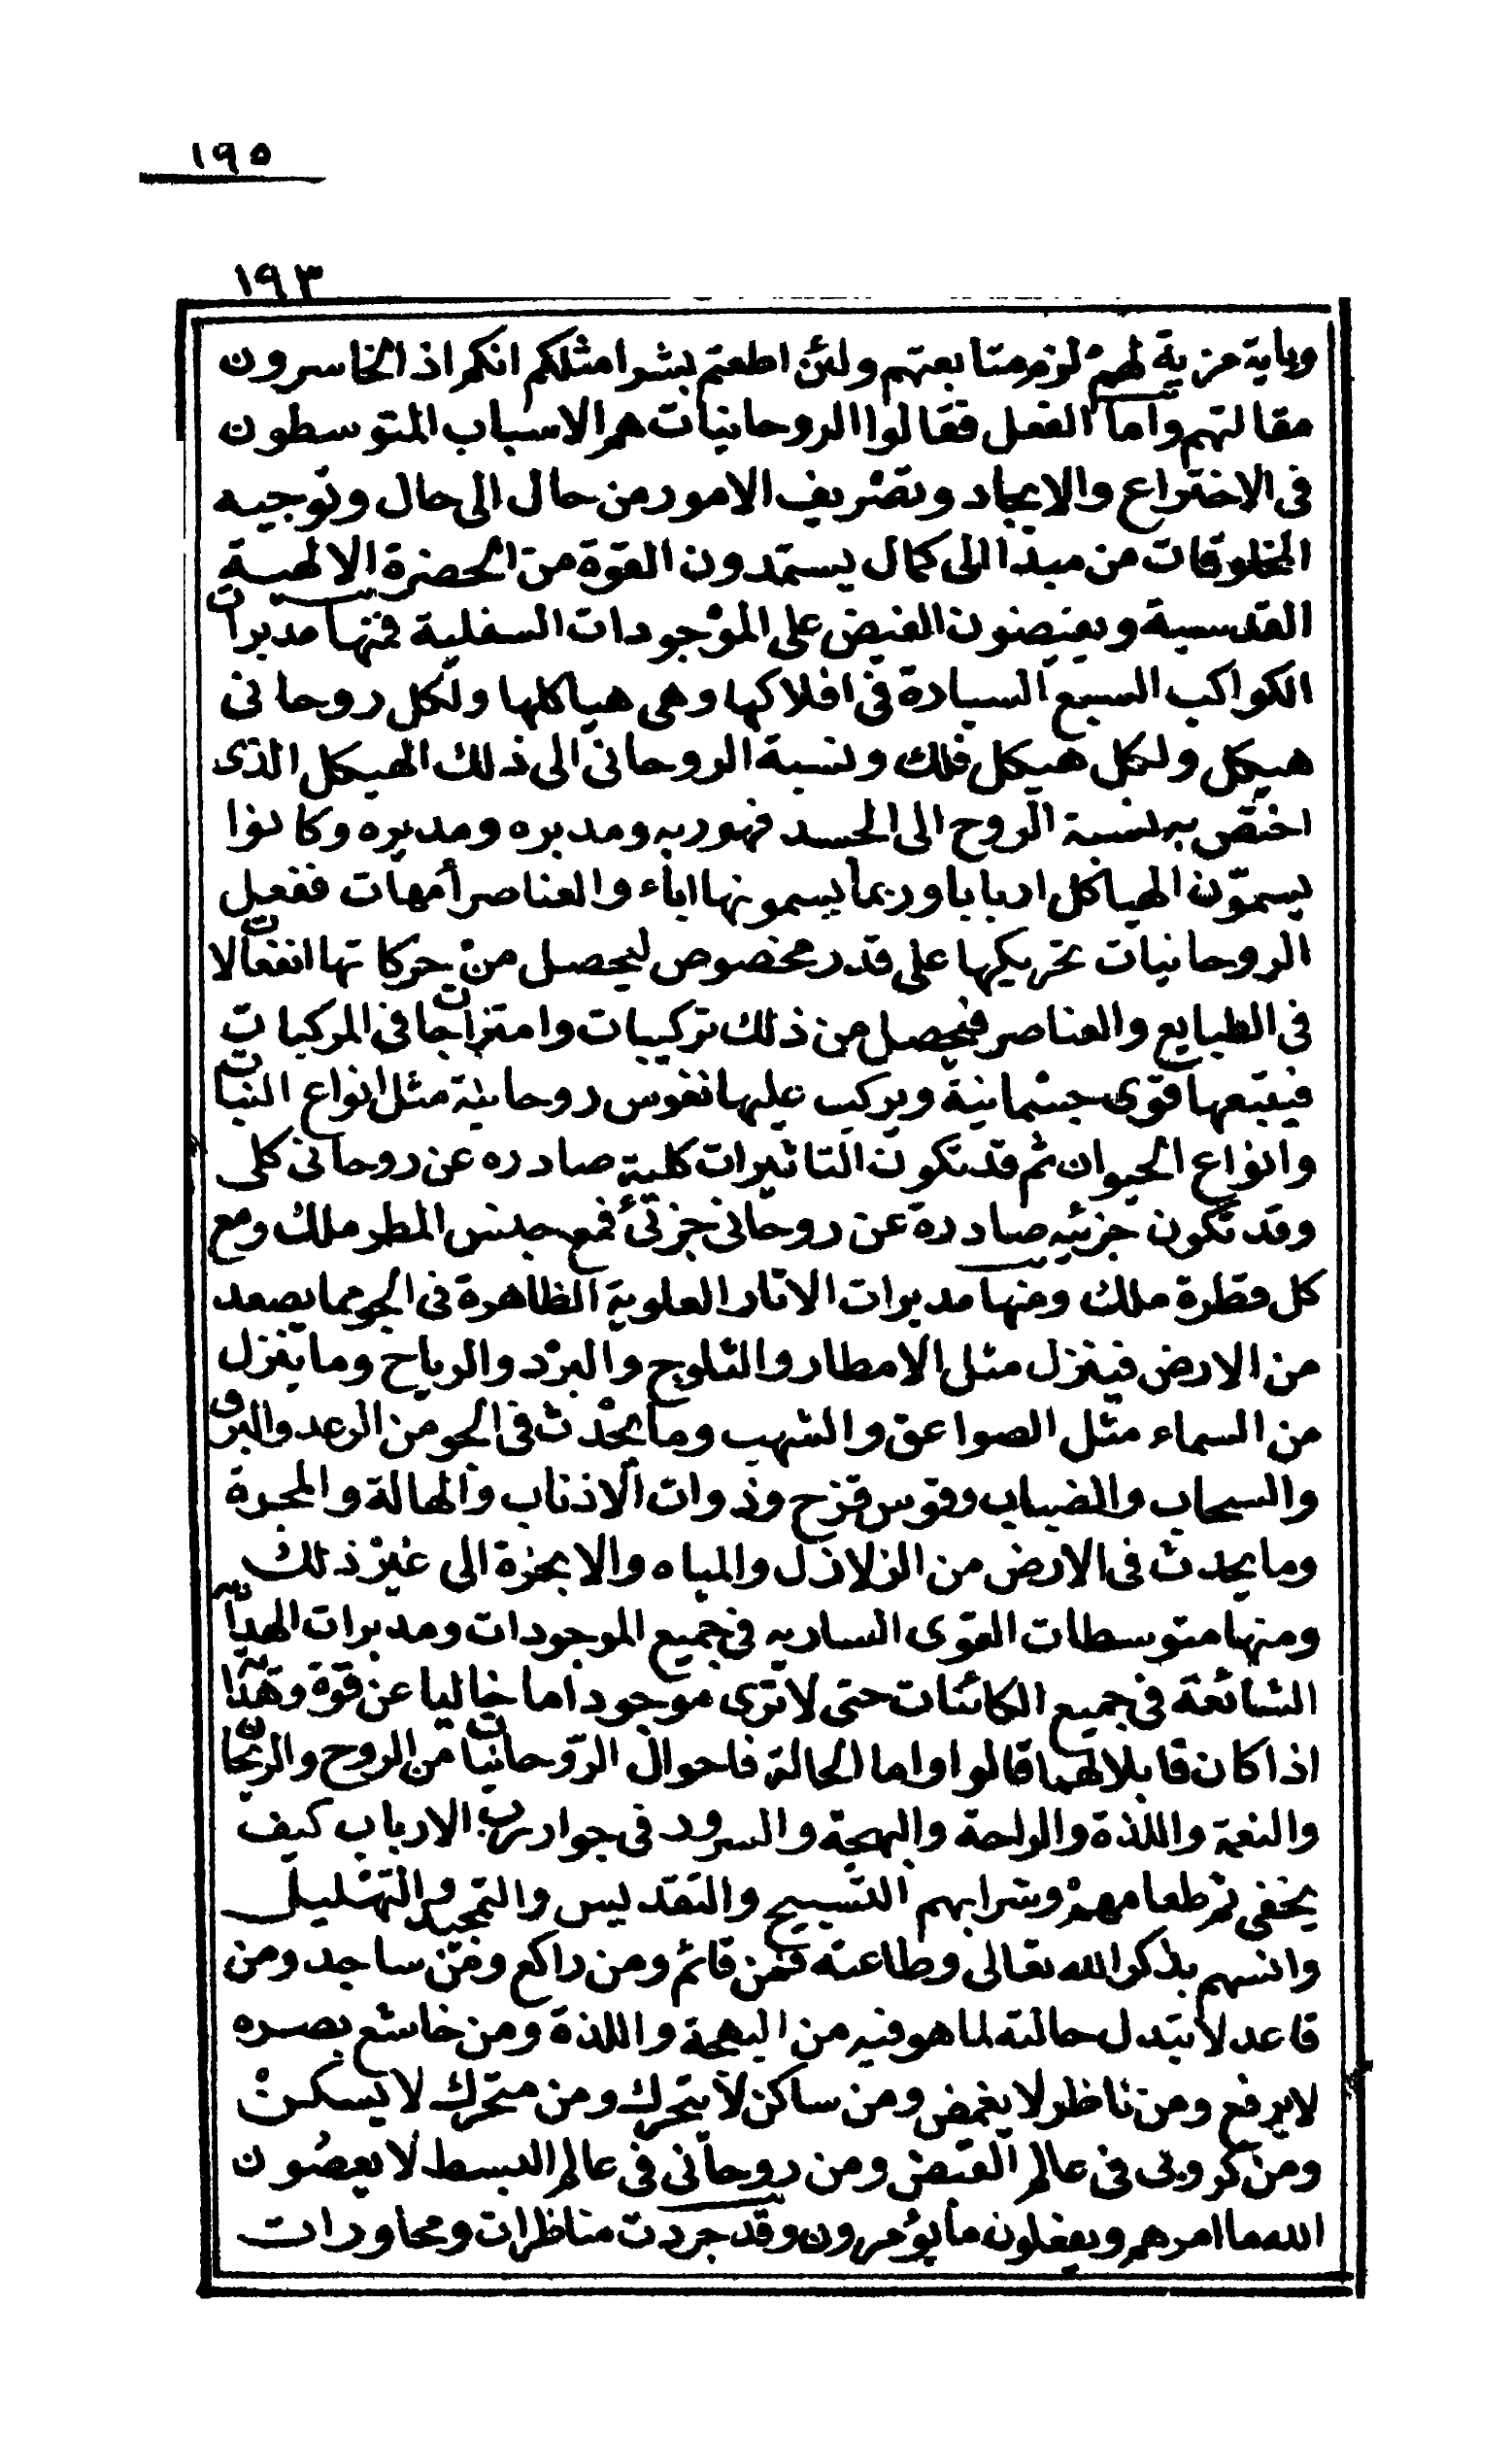 ١٩٥
١٩٣
وباية مزية لهم لزم متابعتهم ولئن اطعتم بشرا مثلكم انكم اذا لخاسرون
مقالتهم واما الفعل فقالوا الروحانيات هم الاسباب المتوسطون
فى الاختراع والايجاد وتصريف الامور من حال الى حال وتوجيه
المخلوقات من مبدا الى كمال يستمدون القوة من الحضرة الالهية
القدسية ويفيضون الفيض على الموجودات السفلية فمنها مدبرات
الكواكب السبع السيارة فى افلاكها وهى هياكلها ولكل روحانى
هيكل ولكل هيكل فلك ونسبة الروحانى الى ذلك الهيكل الذى
اختص به نسبة الروح الى الجسد فهو ربه ومدبره ومديره وكانوا
يسمّون الهياكل اربابا وربما يسمونها اباء والعناصر أمهات ففعل
الروحانيات تحريكها على قدر مخصوص ليحصل من حركاتها انفعالات
فى الطبايع والعناصر فيحصل من ذلك تركيبات وامتزاجات فى المركبات
فيتبعها قوى جسمانية ويركب عليها نفوس روحانية مثل انواع النبات
وانواع الحيوان ثم قد تكون التاثيرات كلية صادره عن روحانى كلى
وقد تكون جزئيه صادرة عن روحانى جزئى فمع جنس المطر ملك ومع
كل قطرة ملك ومنها مدبرات الاثار العلوية الظاهرة فى الجو مما يصعد
من الارض فينزل مثل الامطار والثلوج والبرد والرياح وما ينزل
من السماء مثل الصواعق والشهب وما يحدث فى الجو من الرعد والبرق
والسحاب والضباب وقوس قزح وذوات الاذناب والهالة والمجرة
وما يحدث فى الارض من الزلازل والمياه والابخرة الى غير ذلك
ومنها متوسطات القوى الساريه فى جميع الموجودات ومدبرات الهداية
الشائعة فى جميع الكائنات حتى لا ترى موجودا ما خاليا عن قوة وهداية
اذا كان قابلا لهما قالوا واما الحالة فاحوال الرّوحانيات من الروح والريحان
والنعمة واللذة والراحة والبهجة والسرور فى جوار رب الارباب كيف
يخفى ثم طعامهم وشرابهم التسبيح والتقديس والتمجيد والتهليل
وانسهم بذكر الله تعالى وطاعته فمن قائم ومن راكع ومن ساجد ومن
قاعد لا تبدل حالته لما هو فيه من البهجة واللذة ومن خاشع بصره
لا يرفع ومن ناظر لا يغمض ومن ساكن لا يتحرك ومن متحرك لا يسكن
ومن كروبى فى عالم القبض ومن روحانى فى عالم البسط لا يعصون
الله ما امرهم ويفعلون ما يؤمرون وقد جردت مناظرات ومحاورات